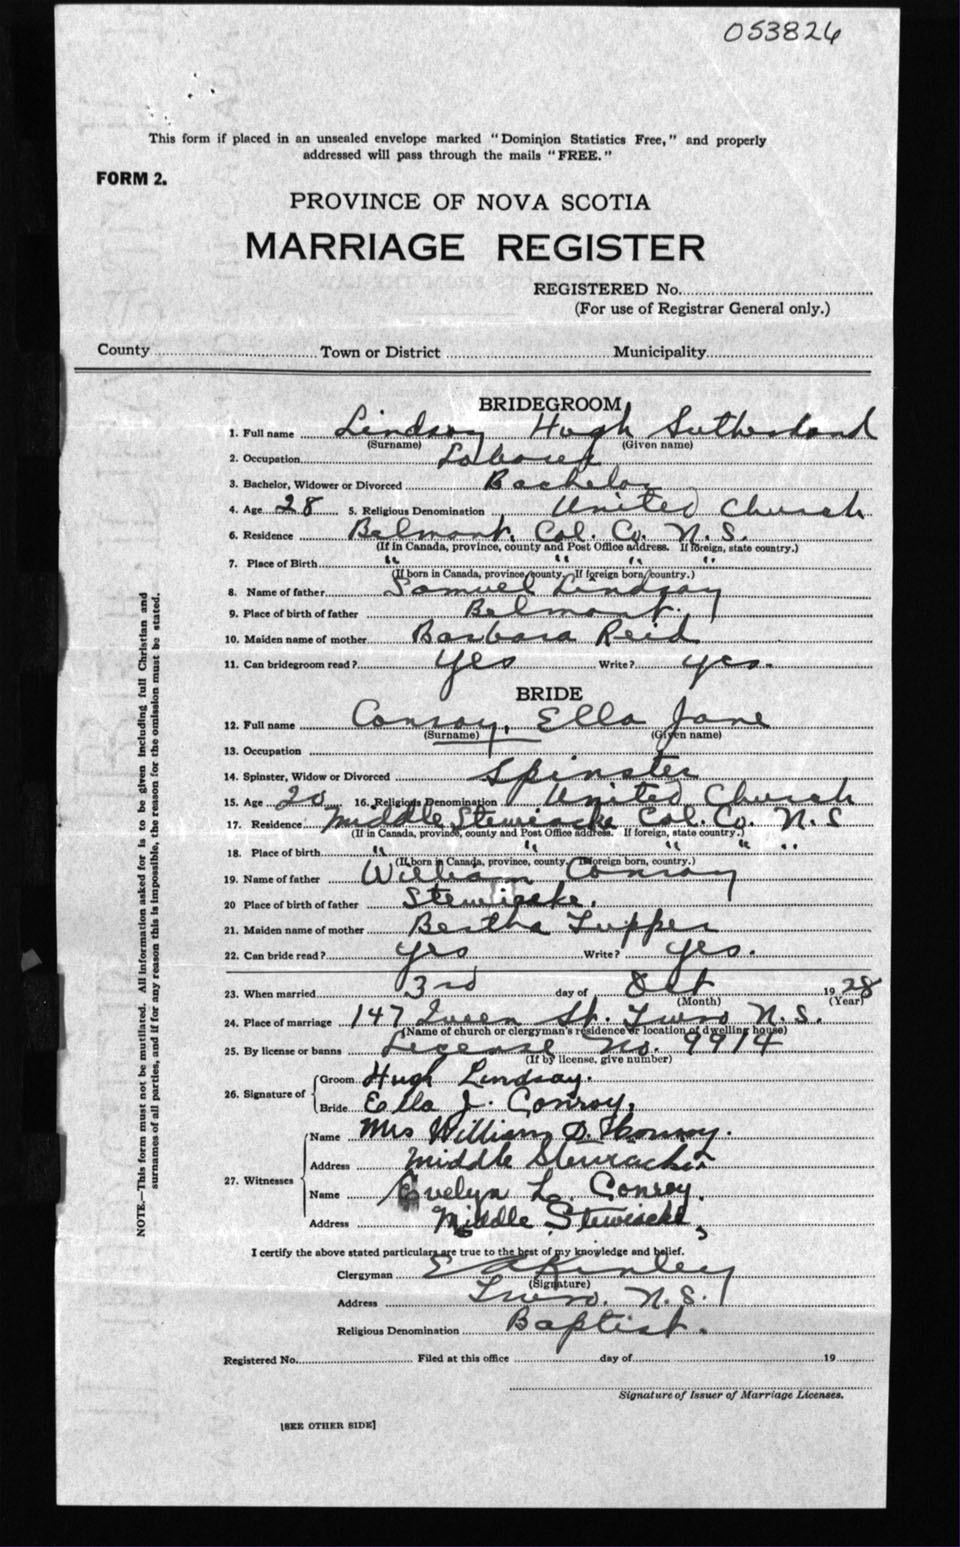 053826
This form if placed in an unsealed envelope marked "Dominion Statistics Free," and properly
addressed will pass through the mails "FREE."
FORM 2.
PROVINCE OF NOVA SCOTIA
MARRIAGE REGISTER
REGISTERED No.
(For use of Registrar General only.)
County Town or District Municipality
BRIDEGROOM
1. Full name Lindsay Hugh Sutherland
(Surname) (Given name)
2. Occupation Laborer
3. Bachelor, Widower or Divorced Bachelor
4. Age 28 5. Religious Denomination United Church
6. Residence Belmont, Col. Co. N.S.
(If in Canada, province, county and Post Office address. If foreign, state country.)
7. Place of Birth " " " "
(If born in Canada, province, county. If foreign born, country.)
8. Name of father Samuel Lindsay
9. Place of birth of father Belmont.
10. Maiden name of mother Barbara Reid
11. Can bridegroom read? Yes Write? yes.
BRIDE
12. Full name Conroy, Ella Jane
(Surname) (Given name)
13. Occupation
14. Spinster, Widow or Divorced Spinster
15. Age 20 16. Religious Denomination United Church
17. Residence Middle Stewiacke Col. Co. N.S
(If in Canada, province, county and Post Office address. If foreign, state country.)
18. Place of birth " " " " "
(If born in Canada, province, county. If foreign born, country.)
19. Name of father William Conroy
20 Place of birth of father Stewiacke.
21. Maiden name of mother Bertha Tupper
22. Can bride read? yes Write? yes.
23. When married 3rd day of Oct 1928
(Month) (Year)
24. Place of marriage 147 Queen St. Truro N.S.
(Name of church or clergyman's residence or location of dwelling house)
25. By license or banns License No. 9914
(If by license, give number)
26. Signature of Groom Hugh Lindsay.
Bride Ella J. Conroy,
27. Witnesses Name Mrs William D. Conroy.
Address Middle Stewiacke
Name Evelyn L. Conroy.
Address Middle Stewiacke,
I certify the above stated particulars are true to the best of my knowledge and belief.
Clergyman E A Kinley
(Signature)
Address Truro. N.S.
Religious Denomination Baptist.
Registered No. Filed at this office day of 19
Signature of Issuer of Marriage Licenses.
[SEE OTHER SIDE]
NOTE.—This form must not be mutilated. All information asked for is to be given including full Christian and
surnames of all parties, and if for any reason this is impossible, the reason for the omission must be stated.